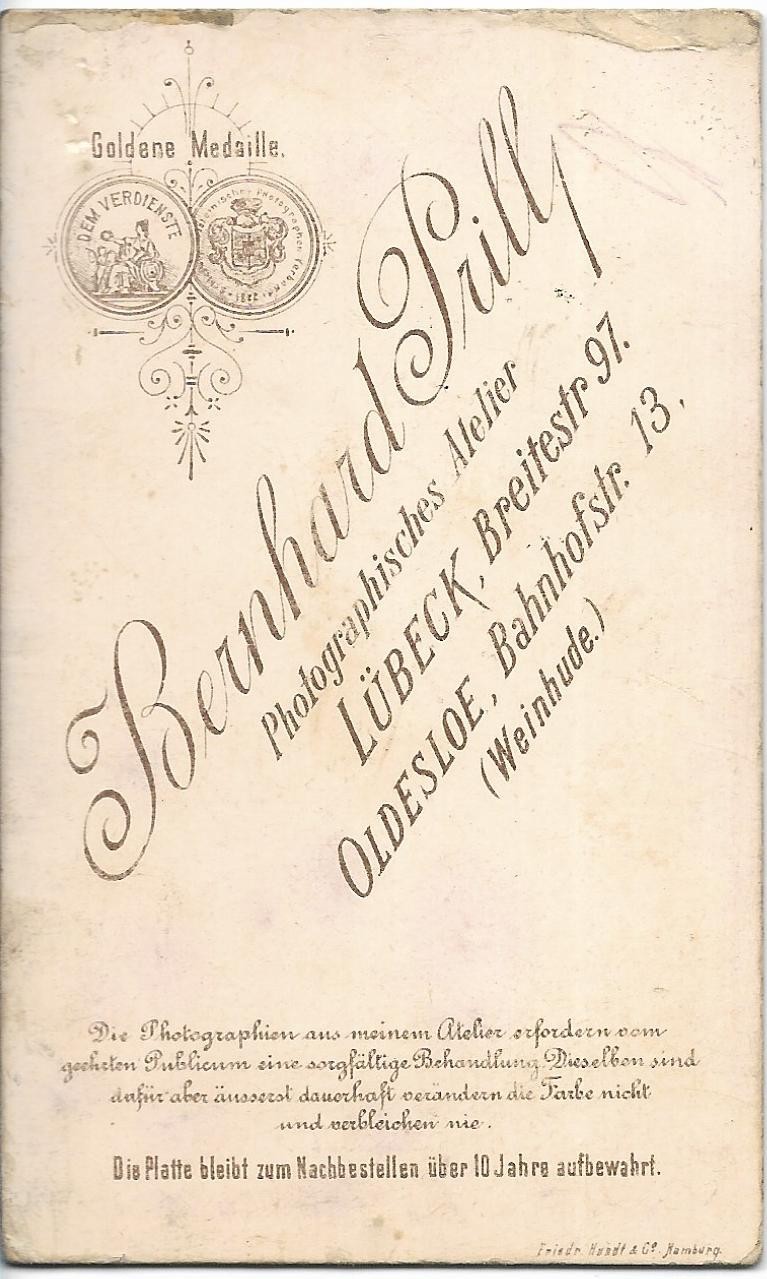 Goldene Medaille.
DEM VERDIENSTE
Photographen
1882
Bernhard Prill
Photographisches Atelier
LÜBECK, Breitestr 97.
OLDESLOE, Bahnhofstr. 13,
(Weinhude.)
Die Photographien aus meinem Atelier erfordern vom
geehrten Publicum eine sorgfältige Behandlung. Dieselben sind
dafür aber äusserst dauerhaft verändern die Farbe nicht
und verbleichen nie.
Die Platte bleibt zum Nachbestellen über 10 Jahre aufbewahrt.
Friedr. Hundt & Co. Hamburg.